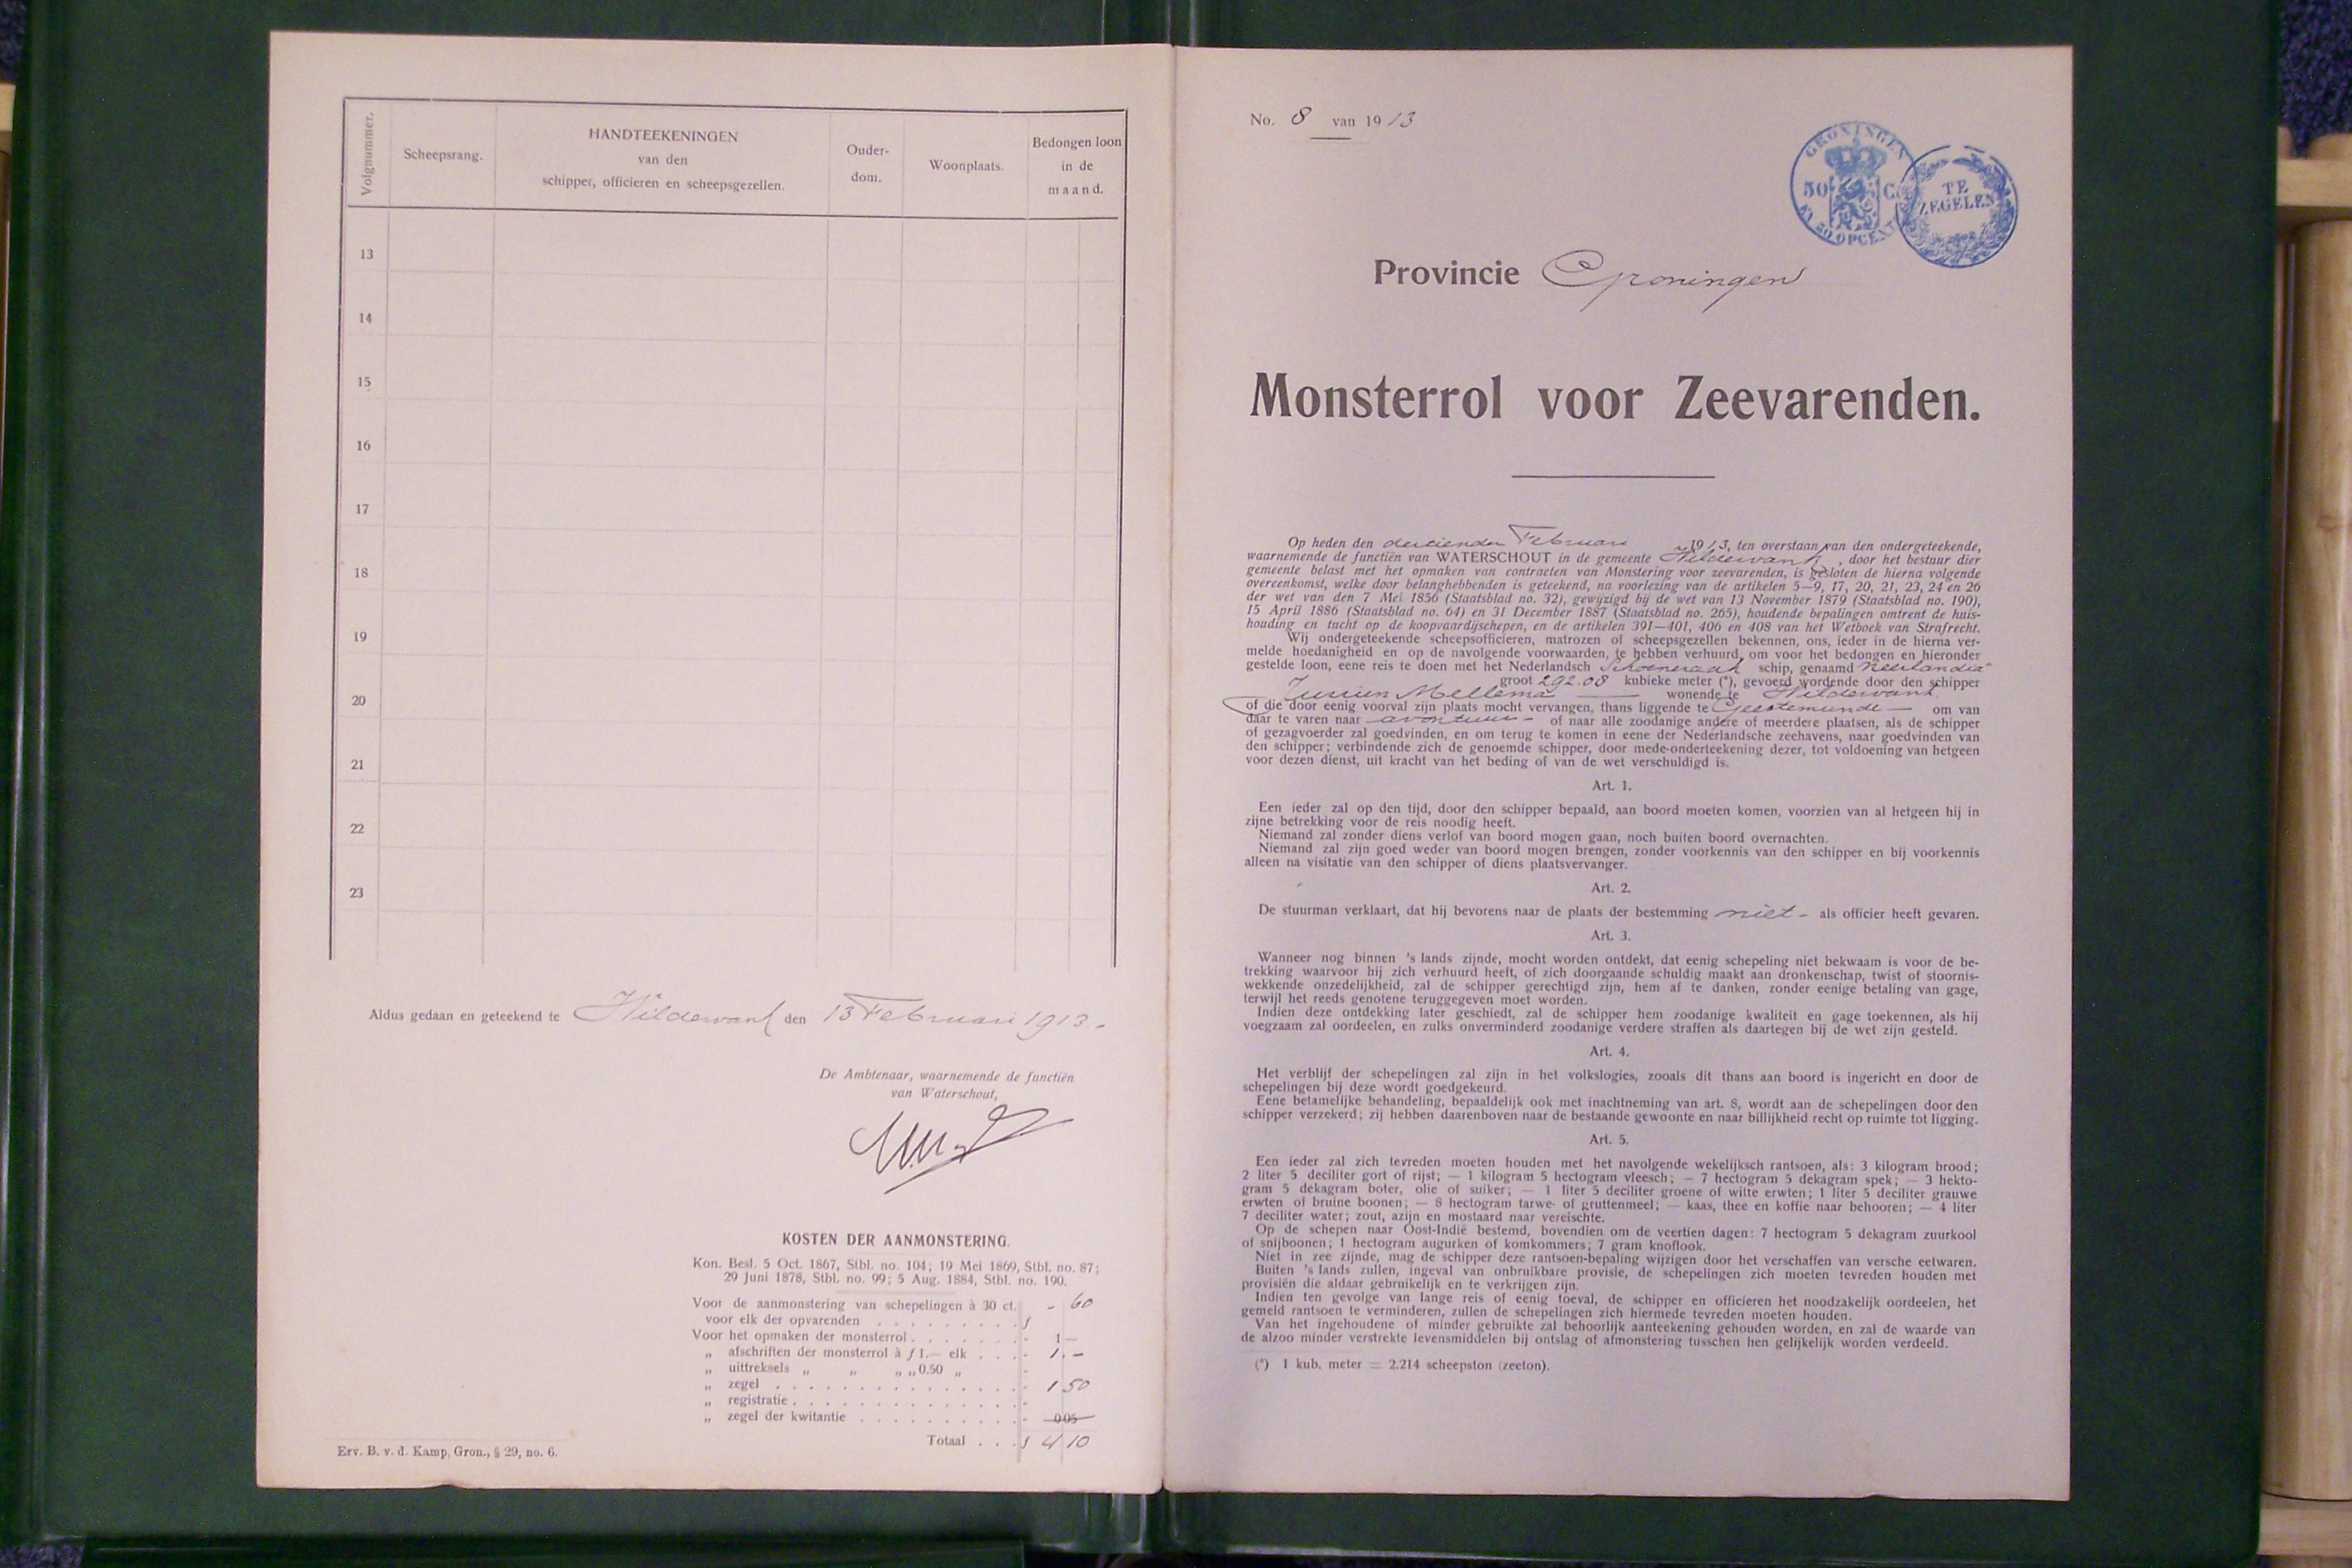 Volgnummer.
Scheepsrang.
HANDTEEKENINGEN
van den
schipper, officieren en scheepsgezellen.
Ouder-
dom.
Woonplaats.
Bedongen loon
in de
maand.
13
14
15
16
17
18
19
20
21
22
23
Aldus gedaan en geteekend te Wildervank den 13 Februari 1913.-
De Ambtenaar, waarnemende de functiën
van Waterschout,
KOSTEN DER AANMONSTERING.
Kon. Besl. 5 Oct. 1867, Stbl. no. 104; 19 Mei 1869, Stbl. no. 87;
29 Juni 1878, Stbl. no. 99; 5 Aug. 1884, Stbl. no. 190.
Voor de aanmonstering van schepelingen à 30 ct.
voor elk der opvarenden . . . . . . . . . . f - 60
Voor het opmaken der monsterrol . . . . . . . - 1 —
„ afschriften der monsterrol à f 1.— elk . . . - 1. -
„ uittreksels „ „ „ „ 0.50 „ -
„ zegel . . . . . . . . . . . . . . . . - 1 50
„ registratie . . . . . . . . . . . . . . -
„ zegel der kwitantie . . . . . . . . . . - 0 05
Totaal . . . f 4 10
Erv. B. v. d. Kamp, Gron., § 29, no. 6.
No. 8 van 1913
GRONINGEN
50 C.
EN 50 OPCENT
TE
ZEGELEN
Provincie Groningen
Monsterrol voor Zeevarenden.
Op heden den dertienden Februari 1913, ten overstaan van den ondergeteekende,
waarnemende de functiën van WATERSCHOUT in de gemeente Wildervank, door het bestuur dier
gemeente belast met het opmaken van contracten van Monstering voor zeevarenden, is gesloten de hierna volgende
overeenkomst, welke door belanghebbenden is geteekend, na voorlezing van de artikelen 5—9, 17, 20, 21, 23, 24 en 26
der wet van den 7 Mei 1856 (Staatsblad no. 32), gewijzigd bij de wet van 13 November 1879 (Staatsblad no. 190),
15 April 1886 (Staatsblad no. 64) en 31 December 1887 (Staatsblad no. 265), houdende bepalingen omtrent de huis-
houding en tucht op de koopvaardijschepen, en de artikelen 391—401, 406 en 408 van het Wetboek van Strafrecht.
Wij ondergeteekende scheepsofficieren, matrozen of scheepsgezellen bekennen, ons, ieder in de hierna ver-
melde hoedanigheid en op de navolgende voorwaarden, te hebben verhuurd, om voor het bedongen en hieronder
gestelde loon, eene reis te doen met het Nederlandsch Schoeneraak schip, genaamd Neerlandia"
groot 292.08 kubieke meter (*), gevoerd wordende door den schipper
Jurrien Mellema — wonende te Wildervank
of die door eenig voorval zijn plaats mocht vervangen, thans liggende te Geestemunde — om van
daar te varen naar avontuur - of naar alle zoodanige andere of meerdere plaatsen, als de schipper
of gezagvoerder zal goedvinden, en om terug te komen in eene der Nederlandsche zeehavens, naar goedvinden van
den schipper; verbindende zich de genoemde schipper, door mede-onderteekening dezer, tot voldoening van hetgeen
voor dezen dienst, uit kracht van het beding of van de wet verschuldigd is.
Art. 1.
Een ieder zal op den tijd, door den schipper bepaald, aan boord moeten komen, voorzien van al hetgeen hij in
zijne betrekking voor de reis noodig heeft.
Niemand zal zonder diens verlof van boord mogen gaan, noch buiten boord overnachten.
Niemand zal zijn goed weder van boord mogen brengen, zonder voorkennis van den schipper en bij voorkennis
alleen na visitatie van den schipper of diens plaatsvervanger.
Art. 2.
De stuurman verklaart, dat hij bevorens naar de plaats der bestemming niet - als officier heeft gevaren.
Art. 3.
Wanneer nog binnen 's lands zijnde, mocht worden ontdekt, dat eenig schepeling niet bekwaam is voor de be-
trekking waarvoor hij zich verhuurd heeft, of zich doorgaande schuldig maakt aan dronkenschap, twist of stoornis-
wekkende onzedelijkheid, zal de schipper gerechtigd zijn, hem af te danken, zonder eenige betaling van gage,
terwijl het reeds genotene teruggegeven moet worden.
Indien deze ontdekking later geschiedt, zal de schipper hem zoodanige kwaliteit en gage toekennen, als hij
voegzaam zal oordeelen, en zulks onverminderd zoodanige verdere straffen als daartegen bij de wet zijn gesteld.
Art. 4.
Het verblijf der schepelingen zal zijn in het volkslogies, zooals dit thans aan boord is ingericht en door de
schepelingen bij deze wordt goedgekeurd.
Eene betamelijke behandeling, bepaaldelijk ook met inachtneming van art. 8, wordt aan de schepelingen door den
schipper verzekerd; zij hebben daarenboven naar de bestaande gewoonte en naar billijkheid recht op ruimte tot ligging.
Art. 5.
Een ieder zal zich tevreden moeten houden met het navolgende wekelijksch rantsoen, als: 3 kilogram brood;
2 liter 5 deciliter gort of rijst; — 1 kilogram 5 hectogram vleesch; — 7 hectogram 5 dekagram spek; — 3 hekto-
gram 5 dekagram boter, olie of suiker; — 1 liter 5 deciliter groene of witte erwten; 1 liter 5 deciliter grauwe
erwten of bruine boonen; — 8 hectogram tarwe- of gruttenmeel; — kaas, thee en koffie naar behooren; — 4 liter
7 deciliter water; zout, azijn en mostaard naar vereischte.
Op de schepen naar Oost-Indië bestemd, bovendien om de veertien dagen: 7 hectogram 5 dekagram zuurkool
of snijboonen; 1 hectogram augurken of komkommers; 7 gram knoflook.
Niet in zee zijnde, mag de schipper deze rantsoen-bepaling wijzigen door het verschaffen van versche eetwaren.
Buiten 's lands zullen, ingeval van onbruikbare provisie, de schepelingen zich moeten tevreden houden met
provisiën die aldaar gebruikelijk en te verkrijgen zijn.
Indien ten gevolge van lange reis of eenig toeval, de schipper en officieren het noodzakelijk oordeelen, het
gemeld rantsoen te verminderen, zullen de schepelingen zich hiermede tevreden moeten houden.
Van het ingehoudene of minder gebruikte zal behoorlijk aanteekening gehouden worden, en zal de waarde van
de alzoo minder verstrekte levensmiddelen bij ontslag of afmonstering tusschen hen gelijkelijk worden verdeeld.
(*) 1 kub. meter = 2.214 scheepston (zeeton).